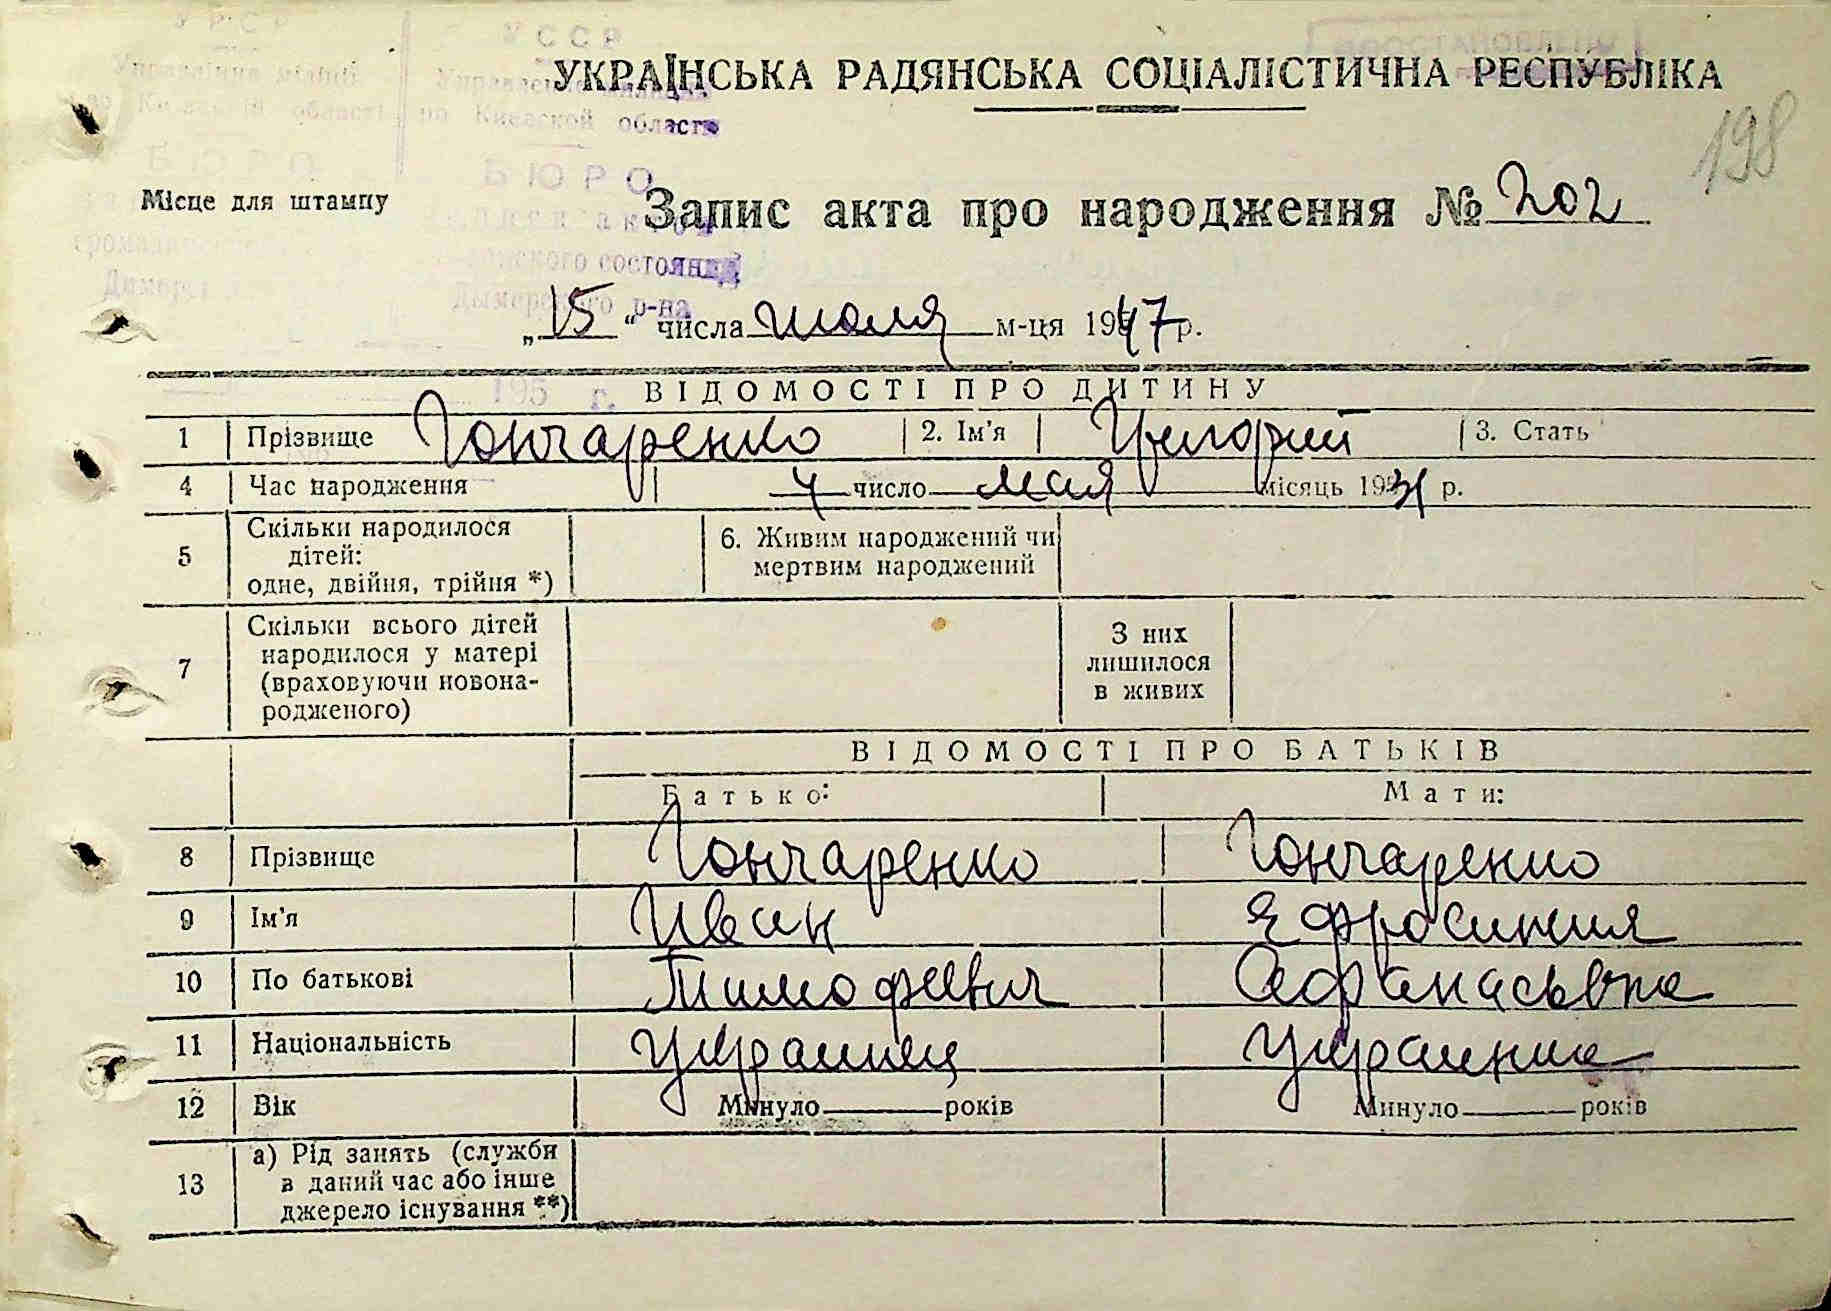 УССР
по Киевской области
БЮРО
ВОССТАНОВЛЕНО
УКРАЇНСЬКА РАДЯНСЬКА СОЦІАЛІСТИЧНА РЕСПУБЛІКА
198
Місце для штампу
Запис акта про народження № 202
Дымерского р-на
„15“ числа июля м-ця 1947 р.
195 г.
ВІДОМОСТІ ПРО ДИТИНУ
1 Прізвище Гончаренко 2. Ім'я Григорий 3. Стать
4 Час народження 4 число мая місяць 1931 р.
5 Скільки народилося дітей: одне, двійня, трійня *) 6. Живим народжений чи мертвим народжений
7 Скільки всього дітей народилося у матері (враховуючи новонародженого) З них лишилося в живих
ВІДОМОСТІ ПРО БАТЬКІВ
Батько: Мати:
8 Прізвище Гончаренко Гончаренко
9 Ім'я Иван Ефросиния
10 По батькові Тимофеевич Афанасьевна
11 Національність украинец украинка
12 Вік Минуло років Минуло років
13 а) Рід занять (служби в даний час або інше джерело існування **)